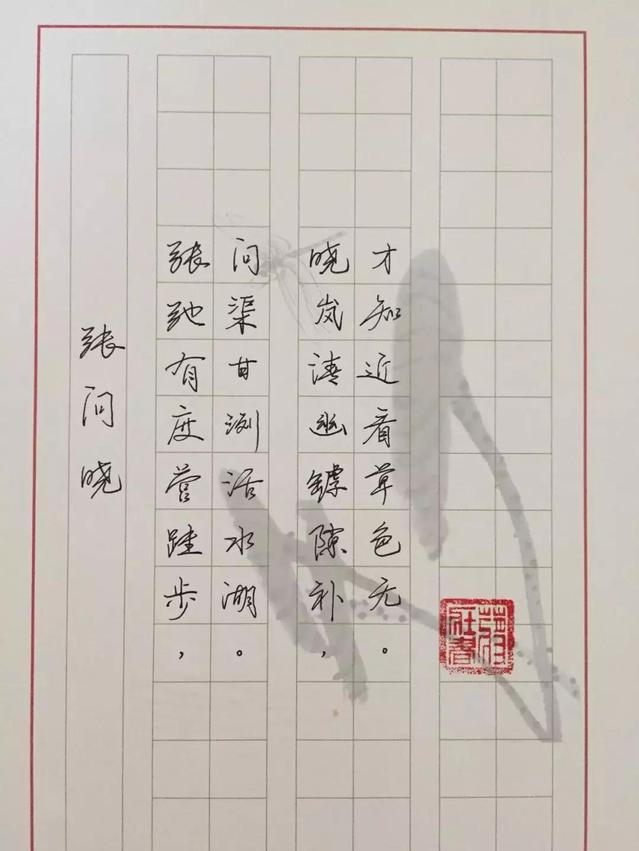 张问晓
张弛有度营跬步，
问渠甘洌活水湖。
晓岚清幽罅隙补，
才知近看草色无。